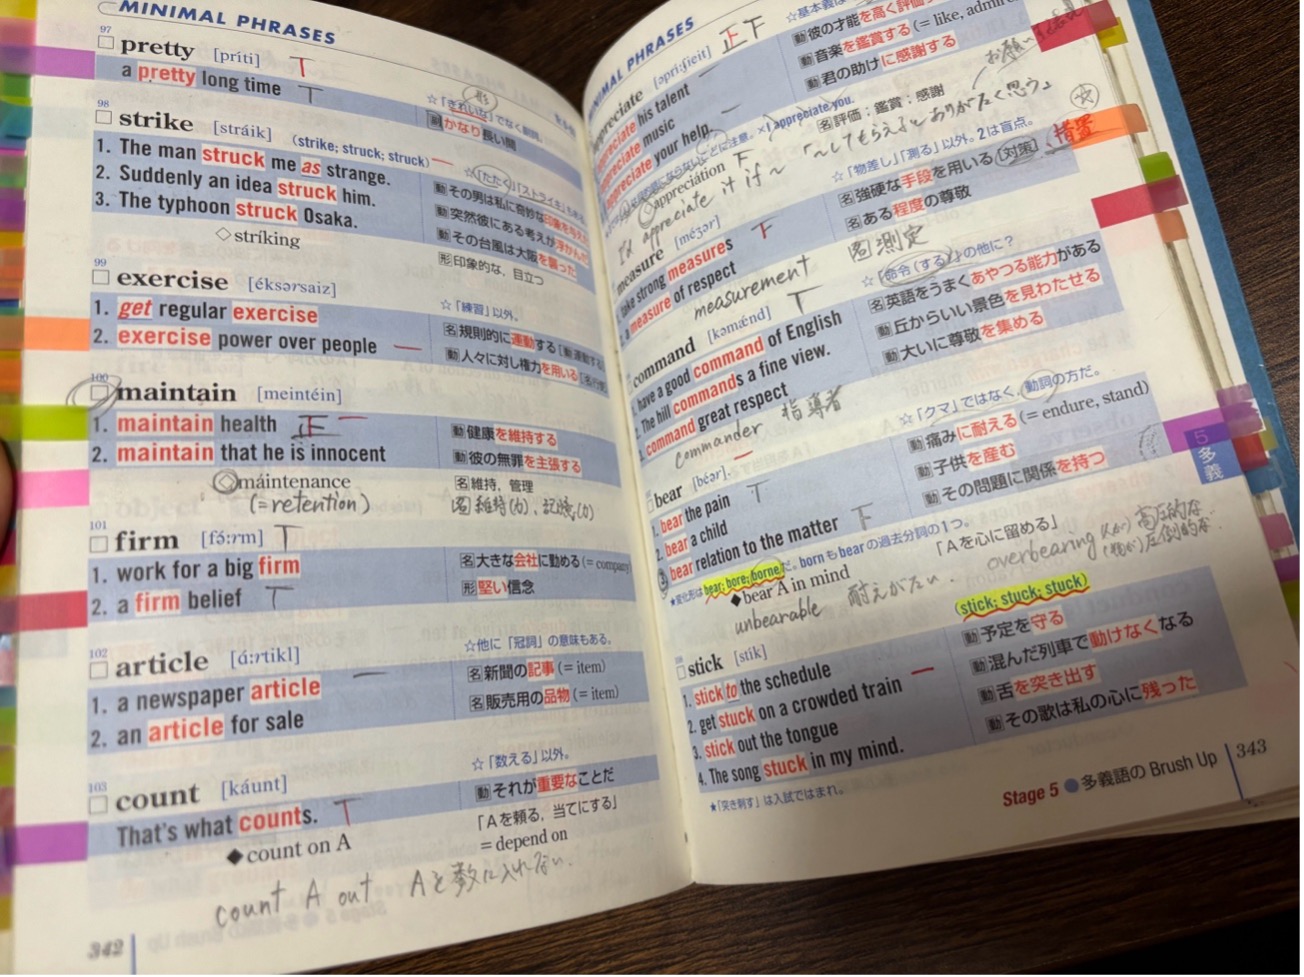 MINIMAL PHRASES
97
pretty [príti] T
a pretty long time T
☆「きれいな」でなく副詞。 形
副 かなり長い間
98
strike [stráik] (strike; struck; struck)
1. The man struck me as strange.
2. Suddenly an idea struck him.
3. The typhoon struck Osaka.
◇stríking
☆「たたく」「ストライキ」
動 その男は私に奇妙な印象を与え
動 突然彼にある考えが浮かんだ
動 その台風は大阪を襲った
形 印象的な，目立つ
99
exercise [éksərsaiz]
1. get regular exercise
2. exercise power over people
☆「練習」以外。
名 規則的に運動する [動 運動する]
動 人々に対し権力を用いる
100
maintain [meintéin]
1. maintain health 正
2. maintain that he is innocent
◇máintenance
(=retention)
動 健康を維持する
動 彼の無罪を主張する
名 維持，管理
名 維持(力)，記憶(力)
101
firm [fə́ːrm] T
1. work for a big firm
2. a firm belief T
名 大きな会社に勤める (= company)
形 堅い信念
102
article [ɑ́ːrtikl]
1. a newspaper article
2. an article for sale
☆他に「冠詞」の意味もある。
名 新聞の記事 (= item)
名 販売用の品物 (= item)
103
count [káunt]
That's what counts. T
◆count on A
☆「数える」以外。
動 それが重要なことだ
「Aを頼る，当てにする」
= depend on
count A out Aを数に入れない.
342
MINIMAL PHRASES
appreciate [əpríːʃieit] 正下
appreciate his talent
appreciate music
appreciate your help.
☆基本義は
動 彼の才能を高く評価
動 音楽を鑑賞する (= like, admire
動 君の助けに感謝する
×I appreciate you.
appreciátion
名 評価；鑑賞；感謝
I'd appreciate it if〜
「〜してもらえるとありがたく思う」
measure [méʒər]
take strong measures T
a measure of respect
measurement 名 測定
☆「物差し」「測る」以外。2は盲点。
名 強硬な手段を用いる 対策 措置
名 ある程度の尊敬
command [kəmǽnd] T
1. have a good command of English
2. The hill commands a fine view.
3. command great respect
commander 指導者
☆「命令(する)」の他に？
名 英語をうまくあやつる能力がある
動 丘からいい景色を見わたせる
動 大いに尊敬を集める
bear [béər]
1. bear the pain T
2. bear a child
3. bear relation to the matter 下
☆「クマ」ではなく，動詞の方だ。
動 痛みに耐える (= endure, stand)
動 子供を産む
動 その問題に関係を持つ
★変化形は bear; bore; borne だ。born も bear の過去分詞の1つ。
◆bear A in mind
「Aを心に留める」
unbearable 耐えがたい.
overbearing (人が)高圧的な
(物が)圧倒的な.
stick [stík]
(stick; stuck; stuck)
1. stick to the schedule
2. get stuck on a crowded train
3. stick out the tongue
4. The song stuck in my mind.
動 予定を守る
動 混んだ列車で動けなくなる
動 舌を突き出す
動 その歌は私の心に残った
★「突き刺す」は入試ではまれ。
5
多義
Stage 5 ●多義語の Brush Up
343